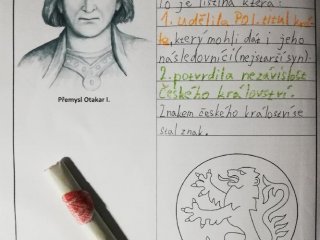 Přemysl Otakar I.
To je listina která:
1. udělila POI. titul krá-
le, který mohli dát i jeho
následovníci (nejstarší syn).
2. potvrdita nezávislost
Českého království.
Znakem českého království se
stal znak.